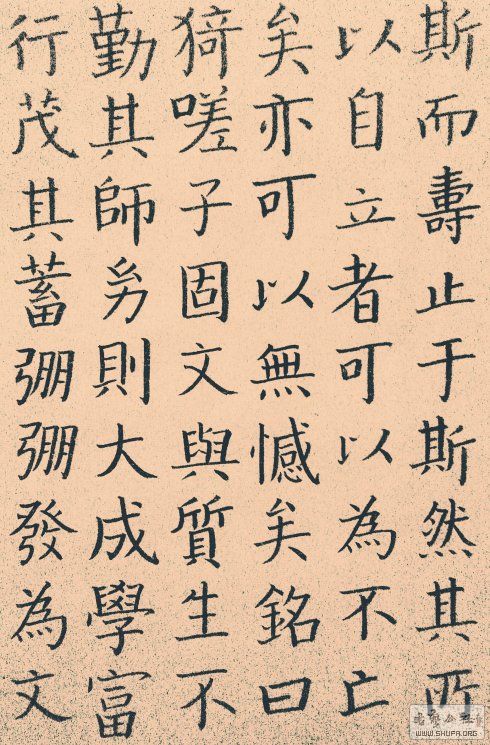 斯而壽止于斯然其所
以自立者可以為不亡
矣亦可以無憾矣銘曰
猗嗟子固文與質生不
勤其師劣則大成學富
行茂其蓄弸弸發為文
WWW.SHUFA.ORG